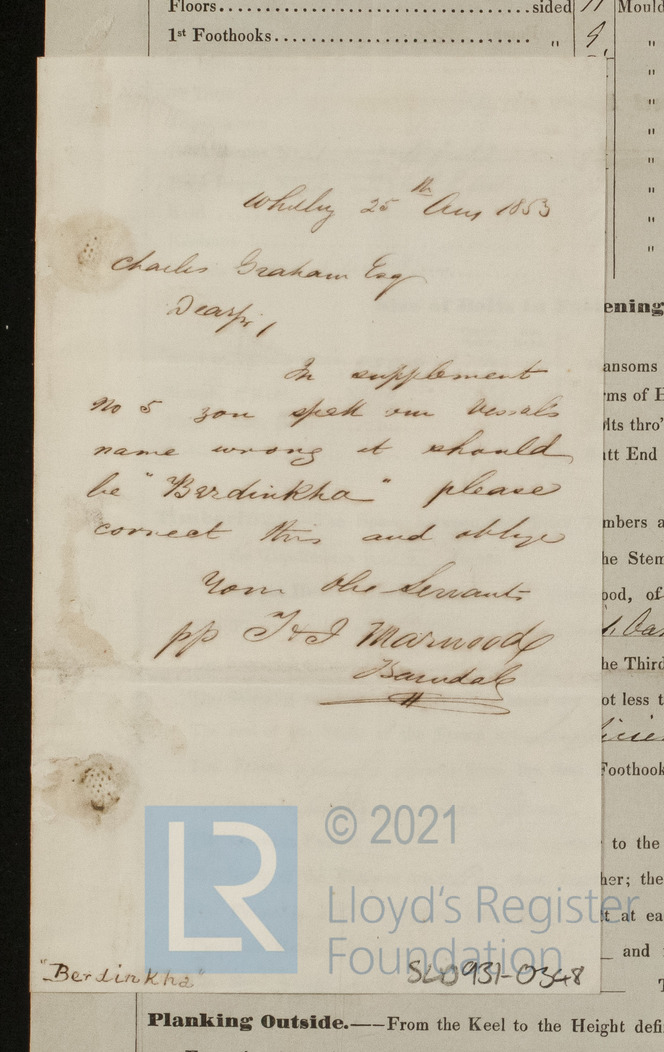 Floors..............................sided
1st Foothooks.............................. " 9
Mould
Whitby 25th Aug 1853
Charles Graham Esq
Dear Sir,
In supplement
No 5 you spell our vessals
name wrong it should
be "Berdinkha" please
correct this and oblige
Your Obe Servants
pp T & J Marwood
Barndale
ening
ansoms
rms of H
lts thro'
tt End
mbers a
he Stem
ood, of
he Third
ot less t
Foothook
to the
her; the
t at ea
and
LR
© 2021
Lloyd's Register
Foundation
"Berdinkha"
SLD931-0348
Planking Outside.——From the Keel to the Height defi